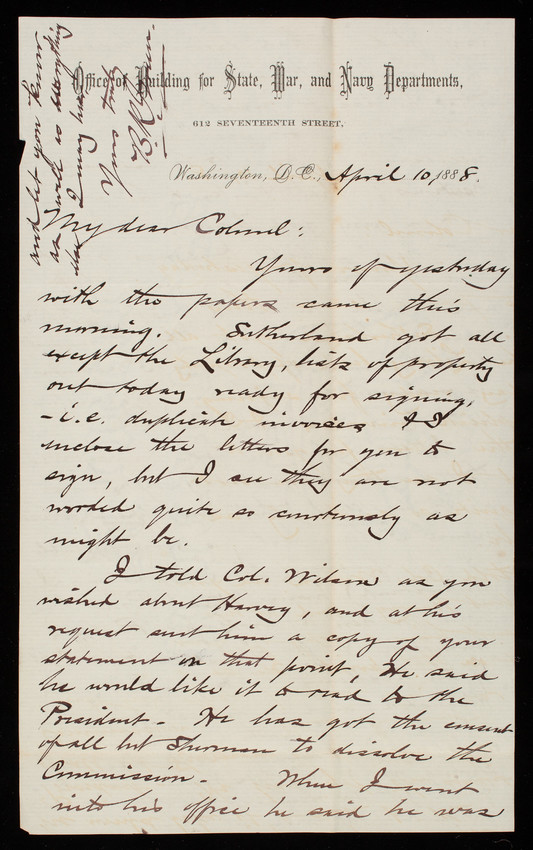 Office of Building for State, War, and Navy Departments,
612 SEVENTEENTH STREET,
Washington, D.C., April 10, 1888.
My dear Colonel:
Yours of yesterday
with the papers came this
morning. Sutherland got all
except the Library, lists of property
out today ready for signing,
- i.e. duplicate invoices & I
inclose the letters for you to
sign, but I see they are not
worded quite so courteously as
might be.
I told Col. Wilson as you
wished about Harvey, and at his
request sent him a copy of your
statement on that point. He said
he would like it to read to the
President - He has got the consent
of all but Sherman to dissolve the
Commission - When I went
into his office he said he was
and let you know
as well as everything
I may hear
Yours truly